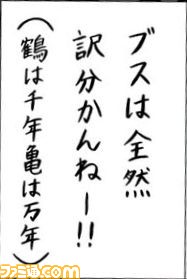 ブスは全然
訳分かんねー!!
(鶴は千年亀は万年)
ファミ通.com